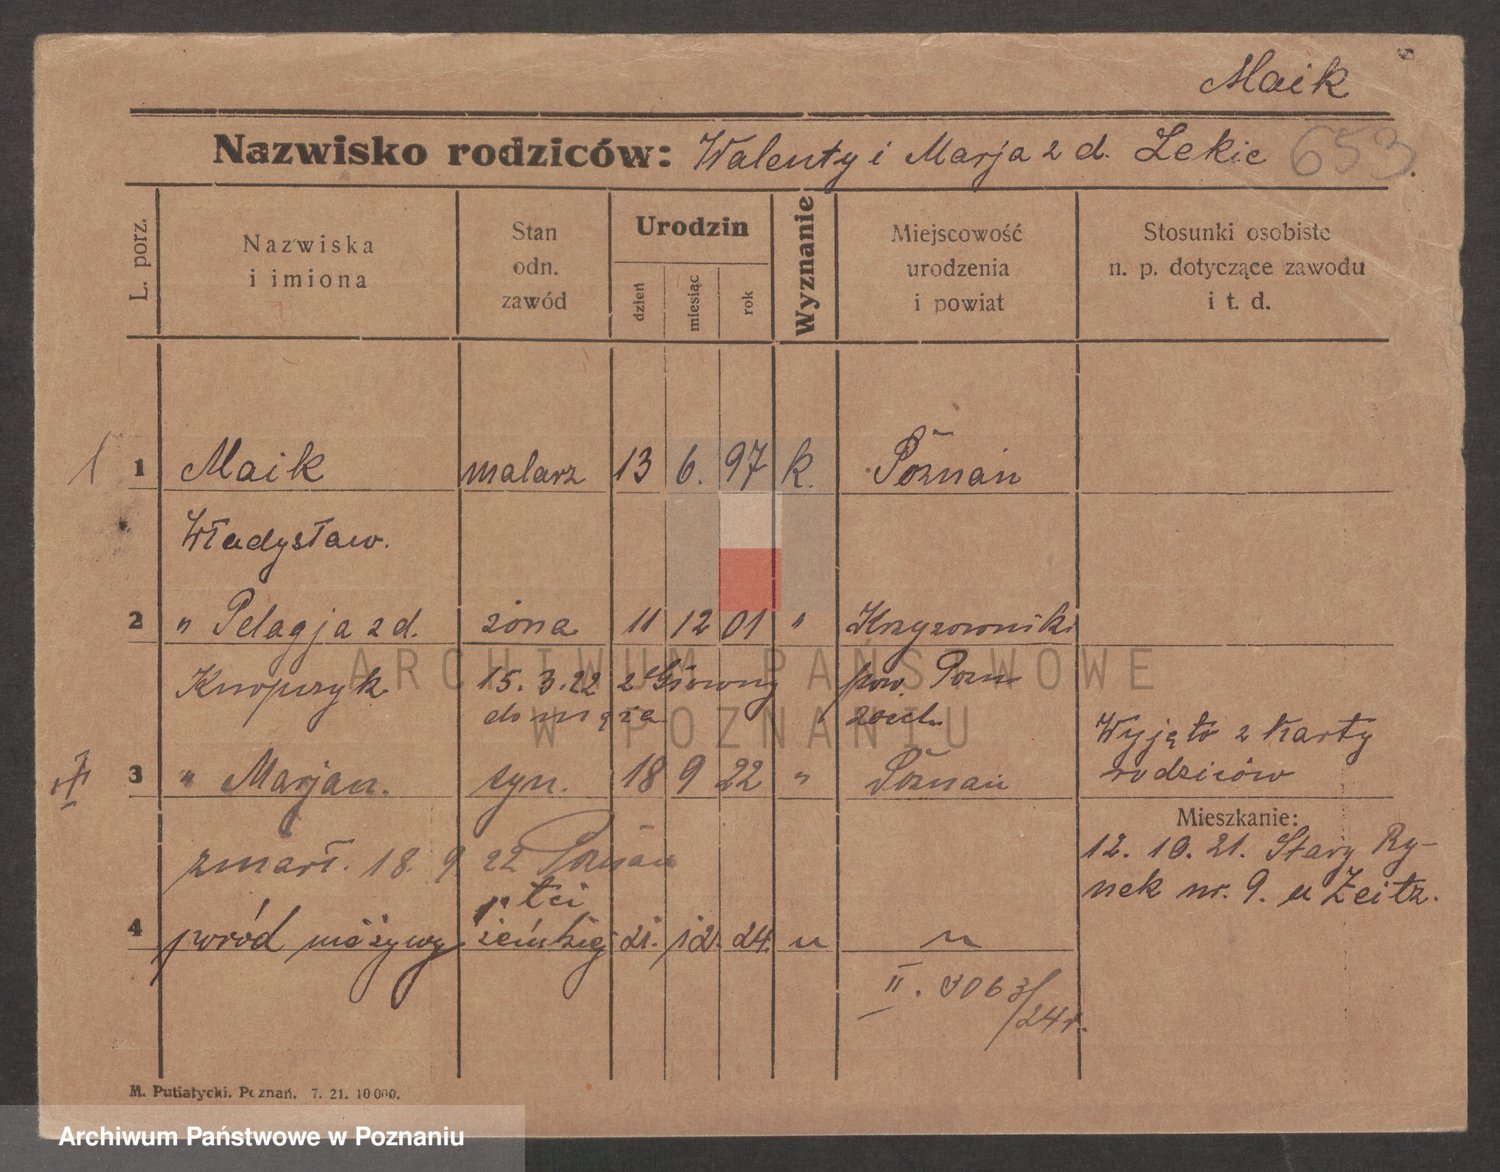 Maik
Nazwisko rodziców: Walenty i Marja z d. Lekie 653
L. porz.
Nazwiska
i imiona
Stan
odn.
zawód
Urodzin
dzień
miesiąc
rok
Wyznanie
Miejscowość
urodzenia
i powiat
Stosunki osobiste
n. p. dotyczące zawodu
i t. d.
1 Maik malarz 13 6. 97 k. Poznań
Władysław.
2 " Pelagja z d. żona 11 12 01 " Krzyżowniki
Knopczyk 15.3.22 z Główny pow. Pozn
do męża zach.
Wyjęto z karty
3 " Marjan. syn. 18 9 22 " Poznań rodziców
Mieszkanie:
zmarł. 18. 9 22 Poznań
12. 10. 21. Stary Ry-
nek nr. 9. u Zeitz.
płci
4 poród nieżywy żeńskiej 21. 12. 24. " "
II. 3063/24r.
M. Putiatycki. Poznań. 7. 21. 10000.
ARCHIWUM PAŃSTWOWE
W POZNANIU
Archiwum Państwowe w Poznaniu